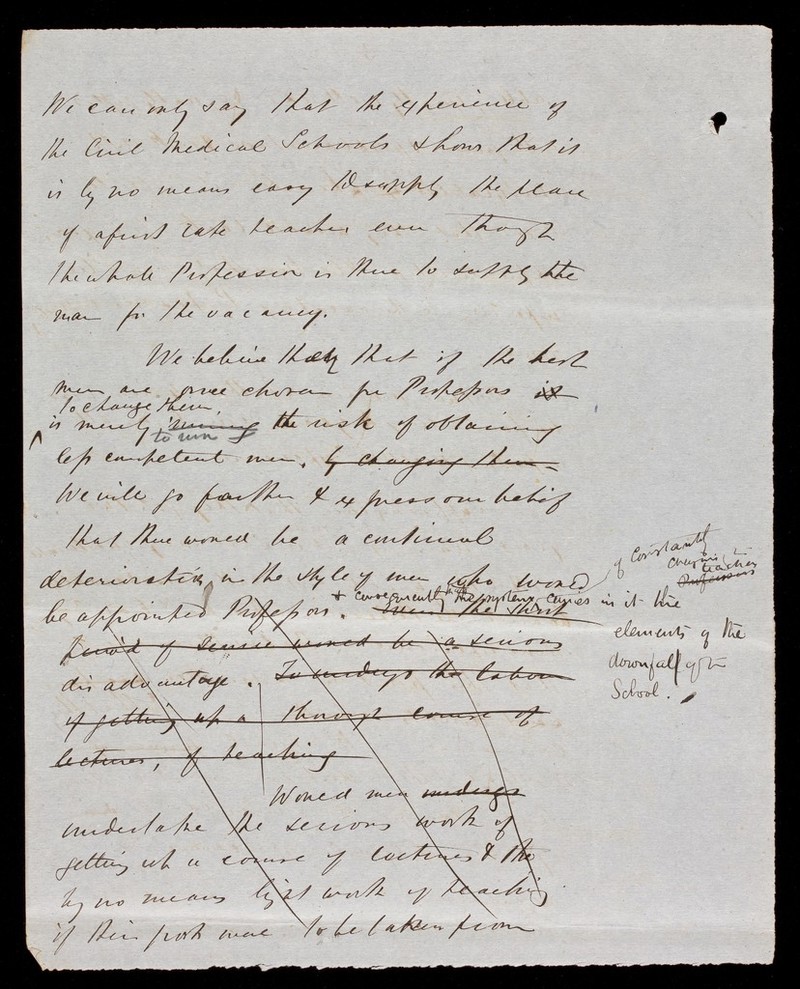 We can only say that the experience of
the Civil Medical Schools shows that it
is by no means easy to supply the place
of a first rate teacher even though
the whole Profession is there to supply the
man for the vacancy.
We believe that if the best
men are once chosen for Professors it
to change them,
is merely running the risk of obtaining
to run
less competent men. by changing them.
We will go farther & express our belief
that there would be a continual
deterioration in the style of men who would
be appointed Professors. even the short
& consequently that the system carries in it the
of constantly
changing
teachers
Professors
elements of the
downfall of the
School.
period of service would be a serious
disadvantage. To undergo the labour
of getting up a thorough course of
lectures, of teaching
Would men undergo
undertake the serious work of
getting up a course of lectures & the
by no means light work of teaching
if their posts were to be taken from